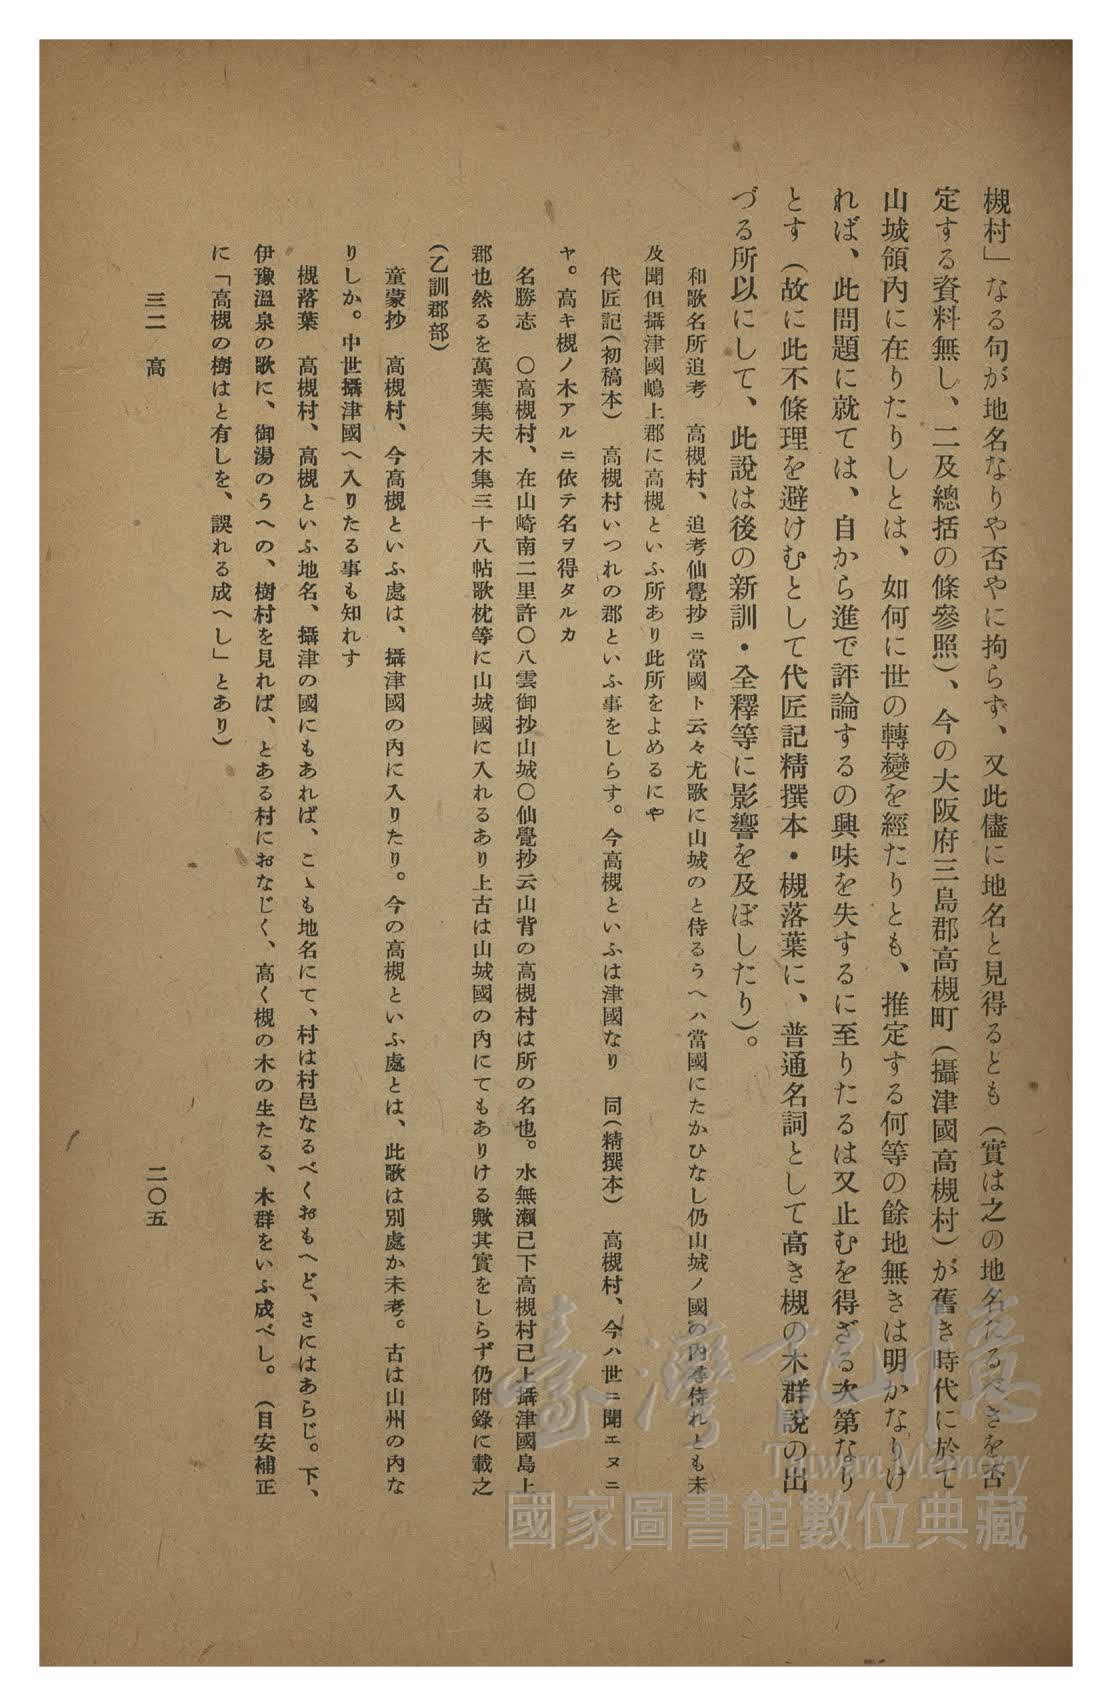 槻村」なる句が地名なりや否やに拘らず、又此儘に地名と見得るとも（實は之の地名たるべきを否
定する資料無し、二及總括の條參照）、今の大阪府三島郡高槻町（攝津國高槻村）が舊き時代に於て
山城領內に在りたりしとは、如何に世の轉變を經たりとも、推定する何等の餘地無きは明かなりけ
れば、此問題に就ては、自から進で評論するの興味を失するに至りたるは又止むを得ざる次第なり
とす（故に此不條理を避けむとして代匠記精撰本・槻落葉に、普通名詞として高き槻の木群說の出
づる所以にして、此說は後の新訓・全釋等に影響を及ぼしたり）。
和歌名所追考　高槻村、追考仙覺抄ニ當國ト云々尤歌に山城のと侍るうヘハ當國にたかひなし仍山城ノ國の內尋侍れとも未
及聞但攝津國嶋上郡に高槻といふ所あり此所をよめるにや
代匠記（初稿本）　高槻村いつれの郡といふ事をしらす。今高槻といふは津國なり　同（精撰本）　高槻村、今ハ世ニ聞エヌニ
ヤ。高キ槻ノ木アルニ依テ名ヲ得タルカ
名勝志　〇高槻村、在山崎南二里許〇八雲御抄山城〇仙覺抄云山背の高槻村は所の名也。水無瀨已下高槻村已上攝津國島上
郡也然るを萬葉集夫木集三十八帖歌枕等に山城國に入れるあり上古は山城國の內にてもありける歟其實をしらず仍附錄に載之
（乙訓郡部）
童蒙抄　高槻村、今高槻といふ處は、攝津國の內に入りたり。今の高槻といふ處とは、此歌は別處か未考。古は山州の內な
りしか。中世攝津國へ入りたる事も知れす
槻落葉　高槻村、高槻といふ地名、攝津の國にもあれば、こゝも地名にて、村は村邑なるべくおもへど、さにはあらじ。下、
伊豫溫泉の歌に、御湯のうへの、樹村を見れば、とある村におなじく、高く槻の木の生たる、木群をいふ成べし。（目安補正
に「高槻の樹はと有しを、誤れる成へし」とあり）
三二　高
二〇五
臺灣記憶
Taiwan Memory
國家圖書館數位典藏